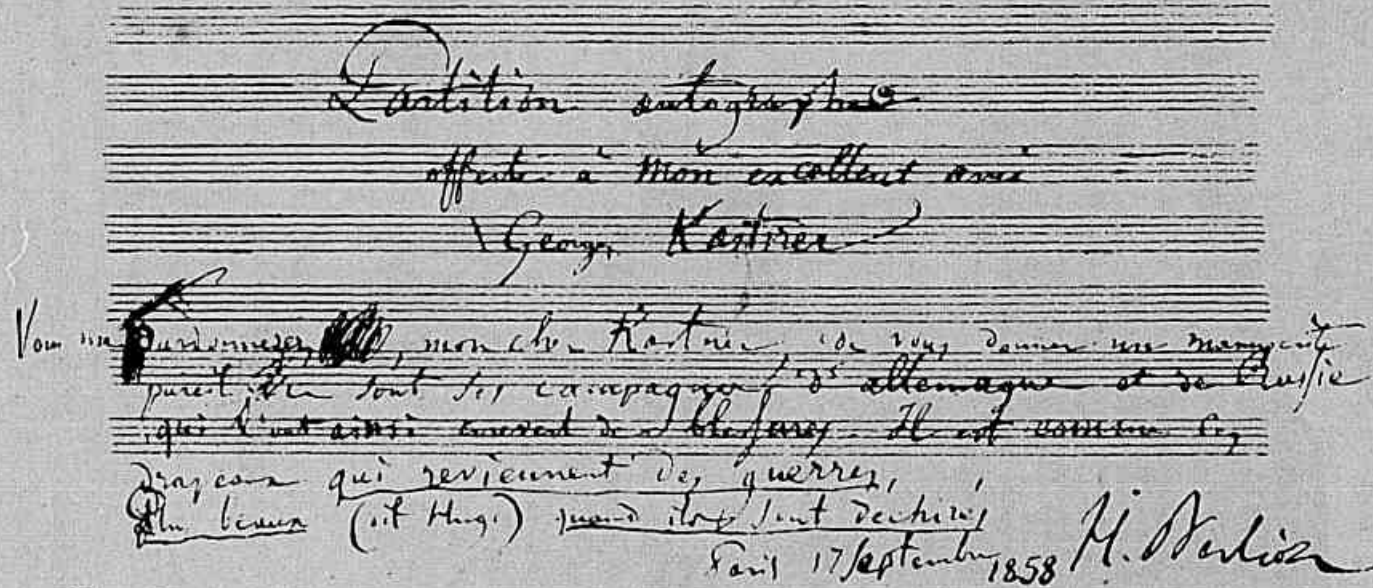 Partition autographe
offerte à mon excellent ami
Georges Kastner
Vous me pardonnerez, mon cher Kastner, de vous donner un manuscrit
pareil; ce sont ses campagnes d'allemagne et de Russie
qui l'ont ainsi couvert de blessures. Il est comme ces
drapeaux qui reviennent des guerres,
Plus beaux (dit Hugo) quand ils sont déchirés
Paris 17 septembre 1858 H. Berlioz